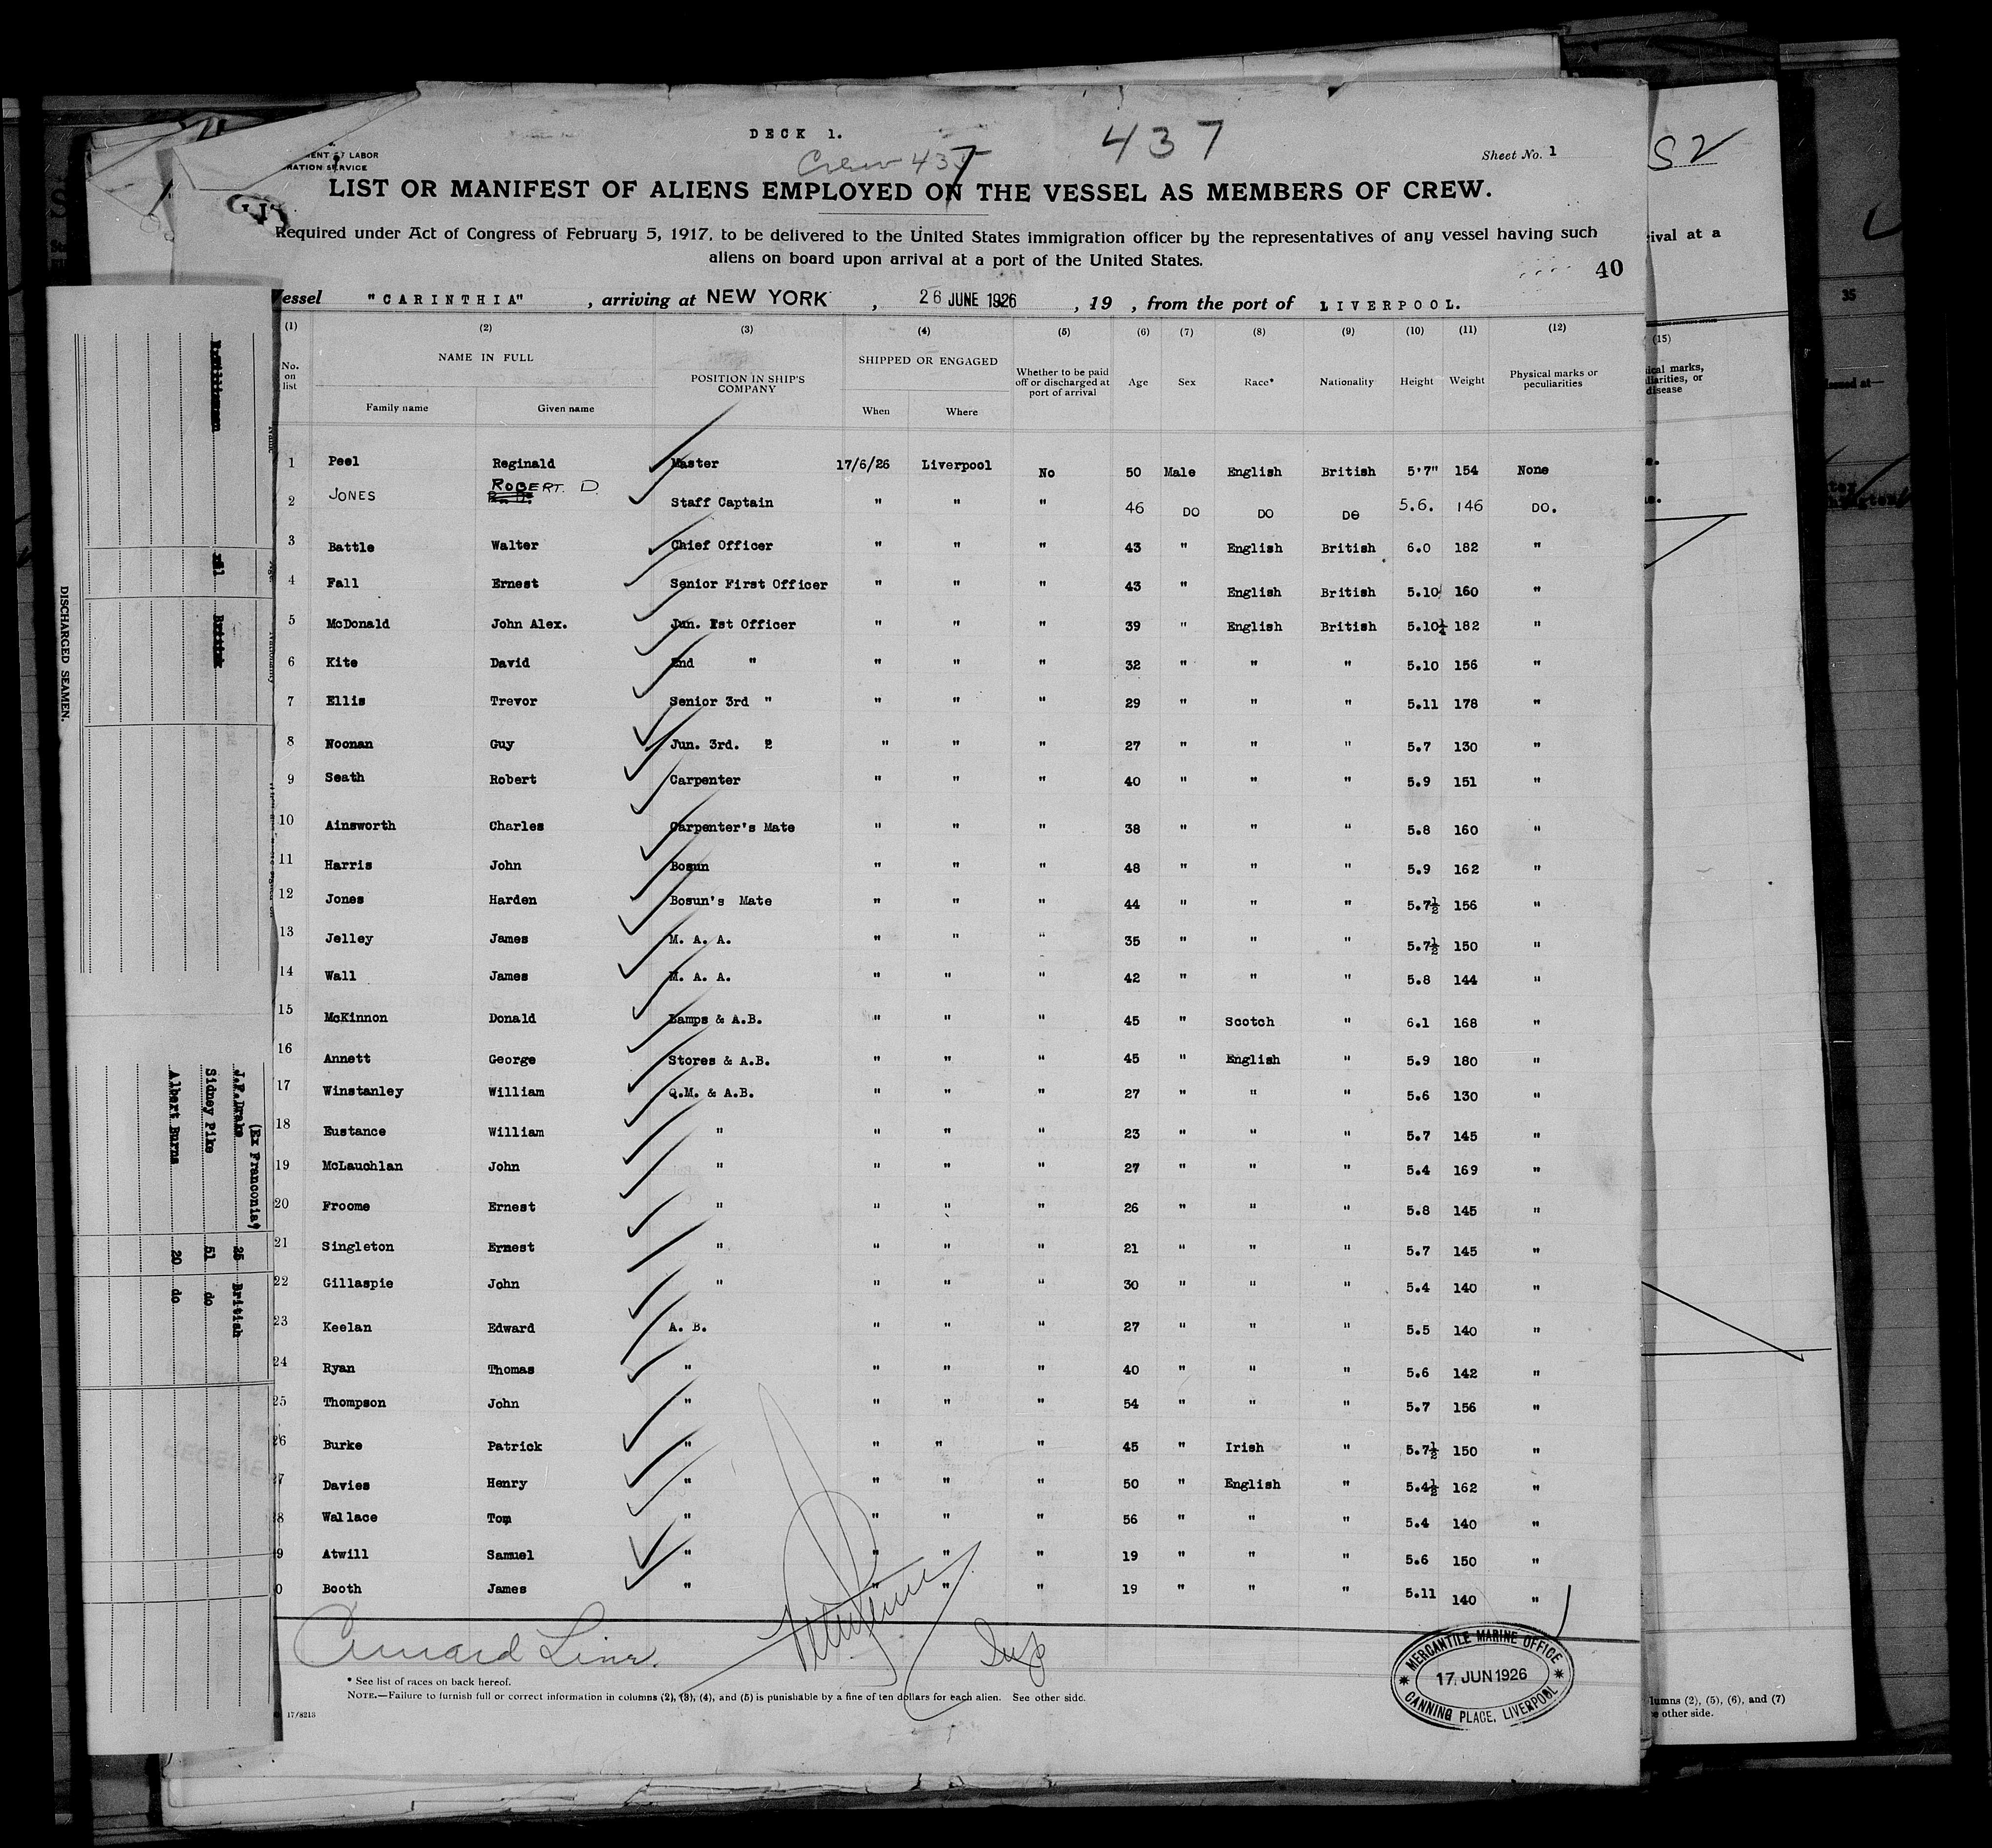 DECK 1.
437
Crew 437
Sheet No. 1
LABOR
SERVICE
LIST OR MANIFEST OF ALIENS EMPLOYED ON THE VESSEL AS MEMBERS OF CREW.
Required under Act of Congress of February 5, 1917, to be delivered to the United States immigration officer by the representatives of any vessel having such
aliens on board upon arrival at a port of the United States.
40
essel "CARINTHIA" , arriving at NEW YORK , 26 JUNE 1926 , 19 , from the port of LIVERPOOL.
(1) (2) (3) (4) (5) (6) (7) (8) (9) (10) (11) (12)
No. on list NAME IN FULL Family name Given name POSITION IN SHIP'S COMPANY SHIPPED OR ENGAGED When Where Whether to be paid off or discharged at port of arrival Age Sex Race* Nationality Height Weight Physical marks or peculiarities
1 Peel Reginald Master 17/6/26 Liverpool No 50 Male English British 5'7" 154 None
2 JONES ROBERT. D. Staff Captain " " " 46 DO DO DO 5.6. 146 DO.
3 Battle Walter Chief Officer " " " 43 " English British 6.0 182 "
4 Fall Ernest Senior First Officer " " " 43 " English British 5.10 160 "
5 McDonald John Alex. Jun. 1st Officer " " " 39 " English British 5.10½ 182 "
6 Kite David 2nd " " " " 32 " " " 5.10 156 "
7 Ellis Trevor Senior 3rd " " " " 29 " " " 5.11 178 "
8 Noonan Guy Jun. 3rd. 2 " " " 27 " " " 5.7 130 "
9 Seath Robert Carpenter " " " 40 " " " 5.9 151 "
10 Ainsworth Charles Carpenter's Mate " " " 38 " " " 5.8 160 "
11 Harris John Bosun " " " 48 " " " 5.9 162 "
12 Jones Harden Bosun's Mate " " " 44 " " " 5.7½ 156 "
13 Jelley James M. A. A. " " " 35 " " " 5.7½ 150 "
14 Wall James M. A. A. " " " 42 " " " 5.8 144 "
15 McKinnon Donald Lamps & A.B. " " " 45 " Scotch " 6.1 168 "
16 Annett George Stores & A.B. " " " 45 " English " 5.9 180 "
17 Winstanley William Q.M. & A.B. " " " 27 " " " 5.6 130 "
18 Eustance William " " " " 23 " " " 5.7 145 "
19 McLauchlan John " " " " 27 " " " 5.4 169 "
20 Froome Ernest " " " " 26 " " " 5.8 145 "
21 Singleton Ernest " " " " 21 " " " 5.7 145 "
22 Gillaspie John " " " " 30 " " " 5.4 140 "
23 Keelan Edward A. B. " " " 27 " " " 5.5 140 "
24 Ryan Thomas " " " " 40 " " " 5.6 142 "
25 Thompson John " " " " 54 " " " 5.7 156 "
26 Burke Patrick " " " " 45 " Irish " 5.7½ 150 "
7 Davies Henry " " " " 50 " English " 5.4½ 162 "
8 Wallace Tom " " " " 56 " " " 5.4 140 "
9 Atwill Samuel " " " " 19 " " " 5.6 150 "
0 Booth James " " " " 19 " " " 5.11 140 "
Cunard Line.
* See list of races on back hereof.
NOTE.—Failure to furnish full or correct information in columns (2), (3), (4), and (5) is punishable by a fine of ten dollars for each alien. See other side.
17/8213
MERCANTILE MARINE OFFICE
17 JUN 1926
CANNING PLACE, LIVERPOOL
DISCHARGED SEAMEN.
British
(Ex Franconia)
J.F.Drake 25 British
Sidney Pike 51 do
Albert Burns 20 do
52
ival at a
35
(15)
ical marks,
liarities, or
disease
issued at—
lumns (2), (5), (6), and (7)
e other side.